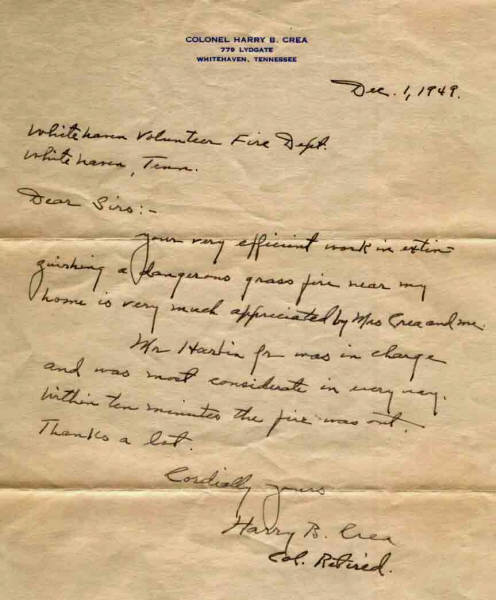 COLONEL HARRY B. CREA
779 LYDGATE
WHITEHAVEN, TENNESSEE
Dec. 1, 1949.
Whitehaven Volunteer Fire Dept.
Whitehaven, Tenn.
Dear Sirs:-
Your very efficient work in extin-
guishing a dangerous grass fire near my
home is very much appreciated by Mrs Crea and me.
Mr Hardin Jr was in charge
and was most considerate in every way.
Within ten minutes the fire was out.
Thanks a lot.
Cordially yours
Harry B. Crea
Col. Retired.